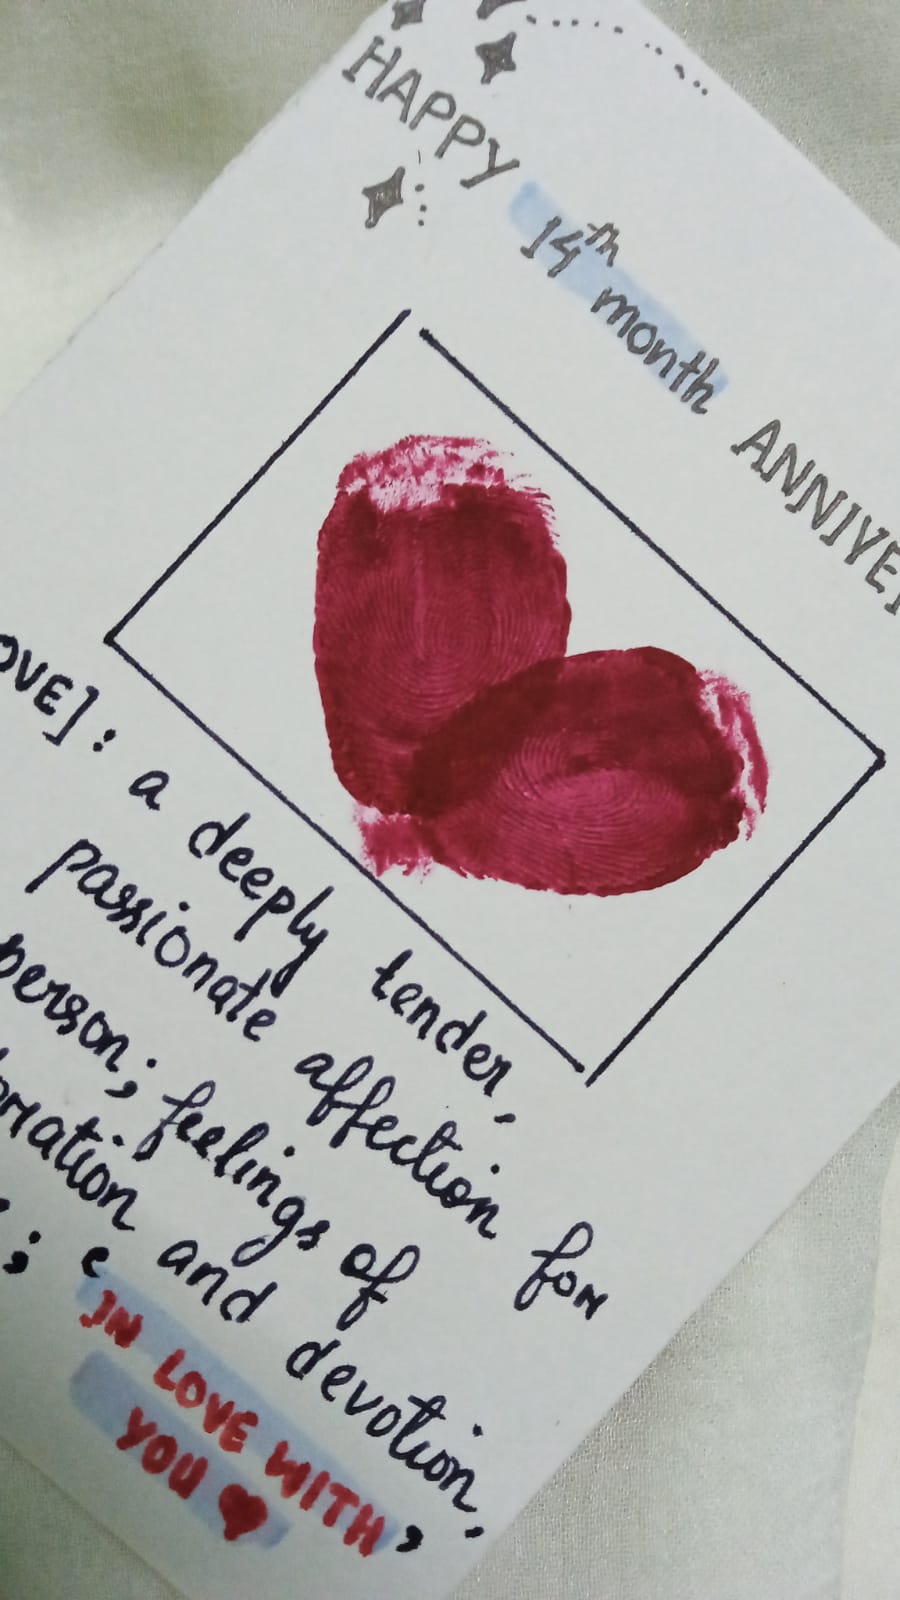 HAPPY 14th month ANNIVE
OVE]: a deeply tender,
passionate affection for
person; feelings of
oration and devotion,
IN LOVE WITH
YOU ♥